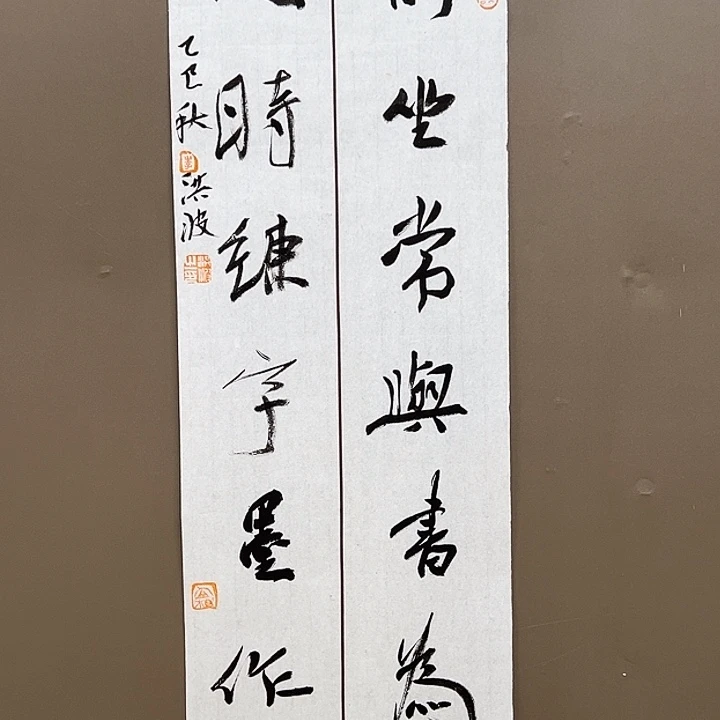 坐常與書為
時練字墨作
乙巳秋洪波